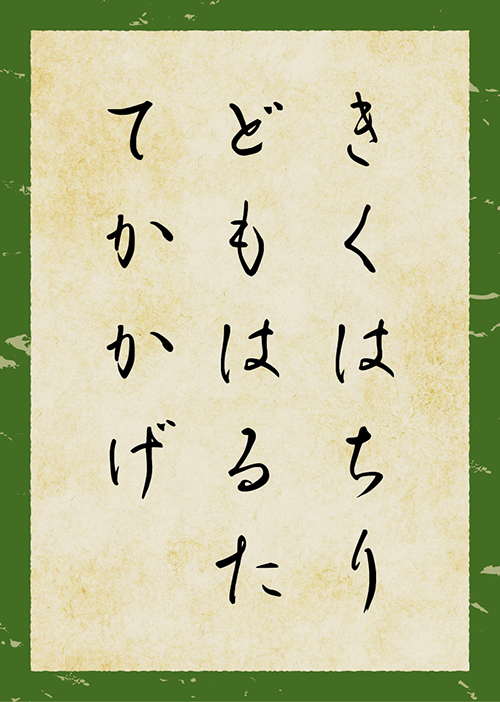 きくはちり
どもはるた
てかかげ